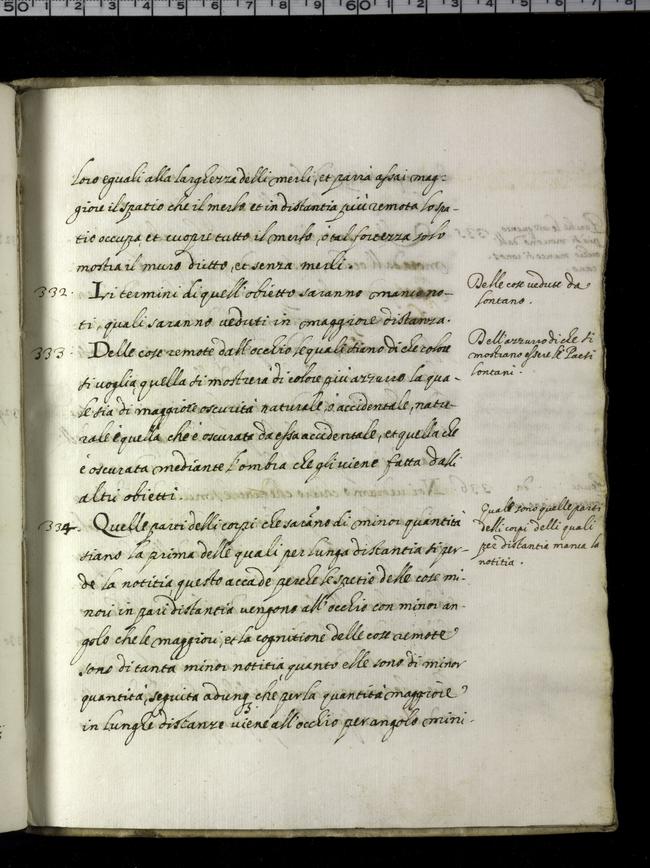 loro eguali alla larghezza delli merli, et parrà assai mag-
giore il spatio che il merlo et in distantia più remota lo spa-
tio occupa et cuopre tutto il merlo, e tal fortezza solo
mostra il muro dritto, et senza merli.
332. Li termini di quell'obietto saranno manco no-
ti, quali saranno veduti in maggiore distanza.
Delle cose vedute da
lontano.
333. Delle cose remote dall'occhio, le quali siano di che colore
si voglia quella si mostrerà di colore più azzurro la qua-
le sia di maggiore oscurità naturale, o accidentale, natu-
rale è quella che è oscurata da essa accidentale, et quella che
è oscurata mediante l'ombra che gli viene fatta dalli
altri obietti.
Dell'azzurro di che si
mostrano essere li Paesi
lontani.
334. Quelle parti delli corpi che saranno di minor quantità
siano la prima delle quali per lunga distantia si per-
de la notitia questo accade perche le spetie delle cose mi-
nori in pari distantia vengono all'occhio con minor an-
golo che le maggiori, et la cognitione delle cose remote
sono di tanta minor notitia quanto elle sono di minor
quantità, seguita adunq che per la quantità maggiore
in lunghe distanze viene all'occhio per angolo mini-
Quale sono quelle parti
delli corpi delli quali
per distantia manca la
notitia.